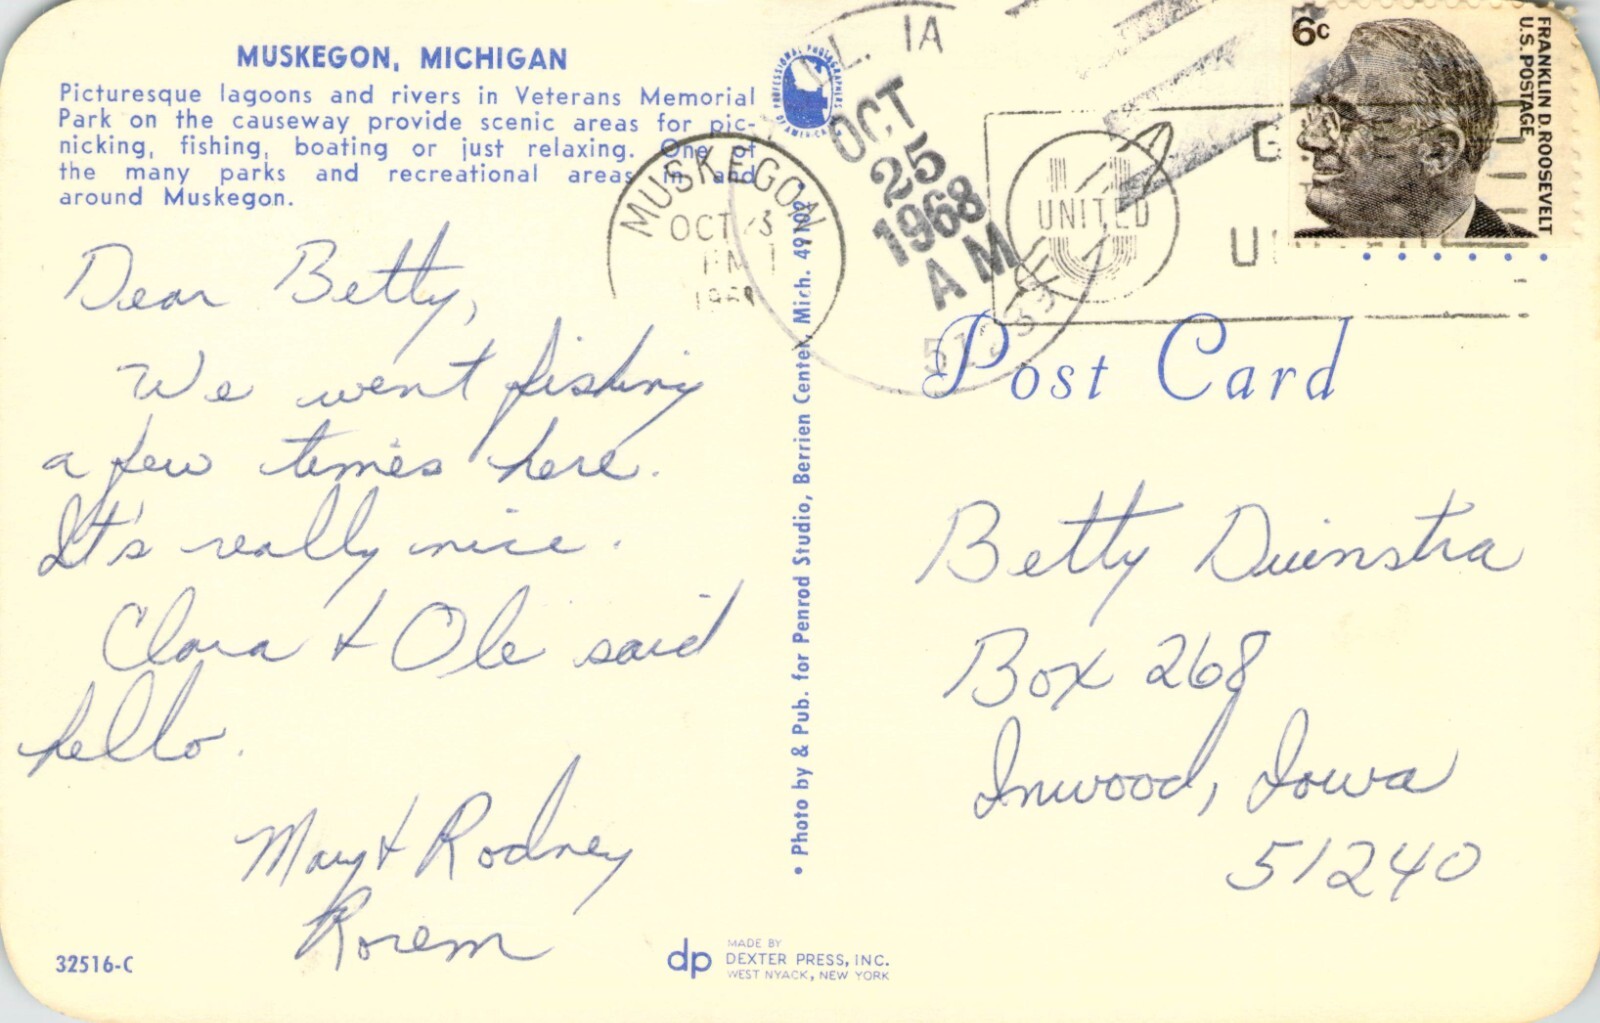 MUSKEGON, MICHIGAN
Picturesque lagoons and rivers in Veterans Memorial
Park on the causeway provide scenic areas for pic-
nicking, fishing, boating or just relaxing. One of
the many parks and recreational areas in and
around Muskegon.
Dear Betty,
We went fishing
a few times here.
It's really nice.
Clara & Ole said
hello.
Mary & Rodney
Rorem
32516-C
dp
MADE BY
DEXTER PRESS, INC.
WEST NYACK, NEW YORK
• Photo by & Pub. for Penrod Studio, Berrien Center, Mich. 49102 •
PROFESSIONAL PHOTOGRAPHERS OF AMERICA
MUSKEGON
OCT 23
PM
1968
IA
OCT
25
1968
AM
UNITED
6c
FRANKLIN D. ROOSEVELT
U.S. POSTAGE
Post Card
Betty Duinstra
Box 268
Inwood, Iowa
51240